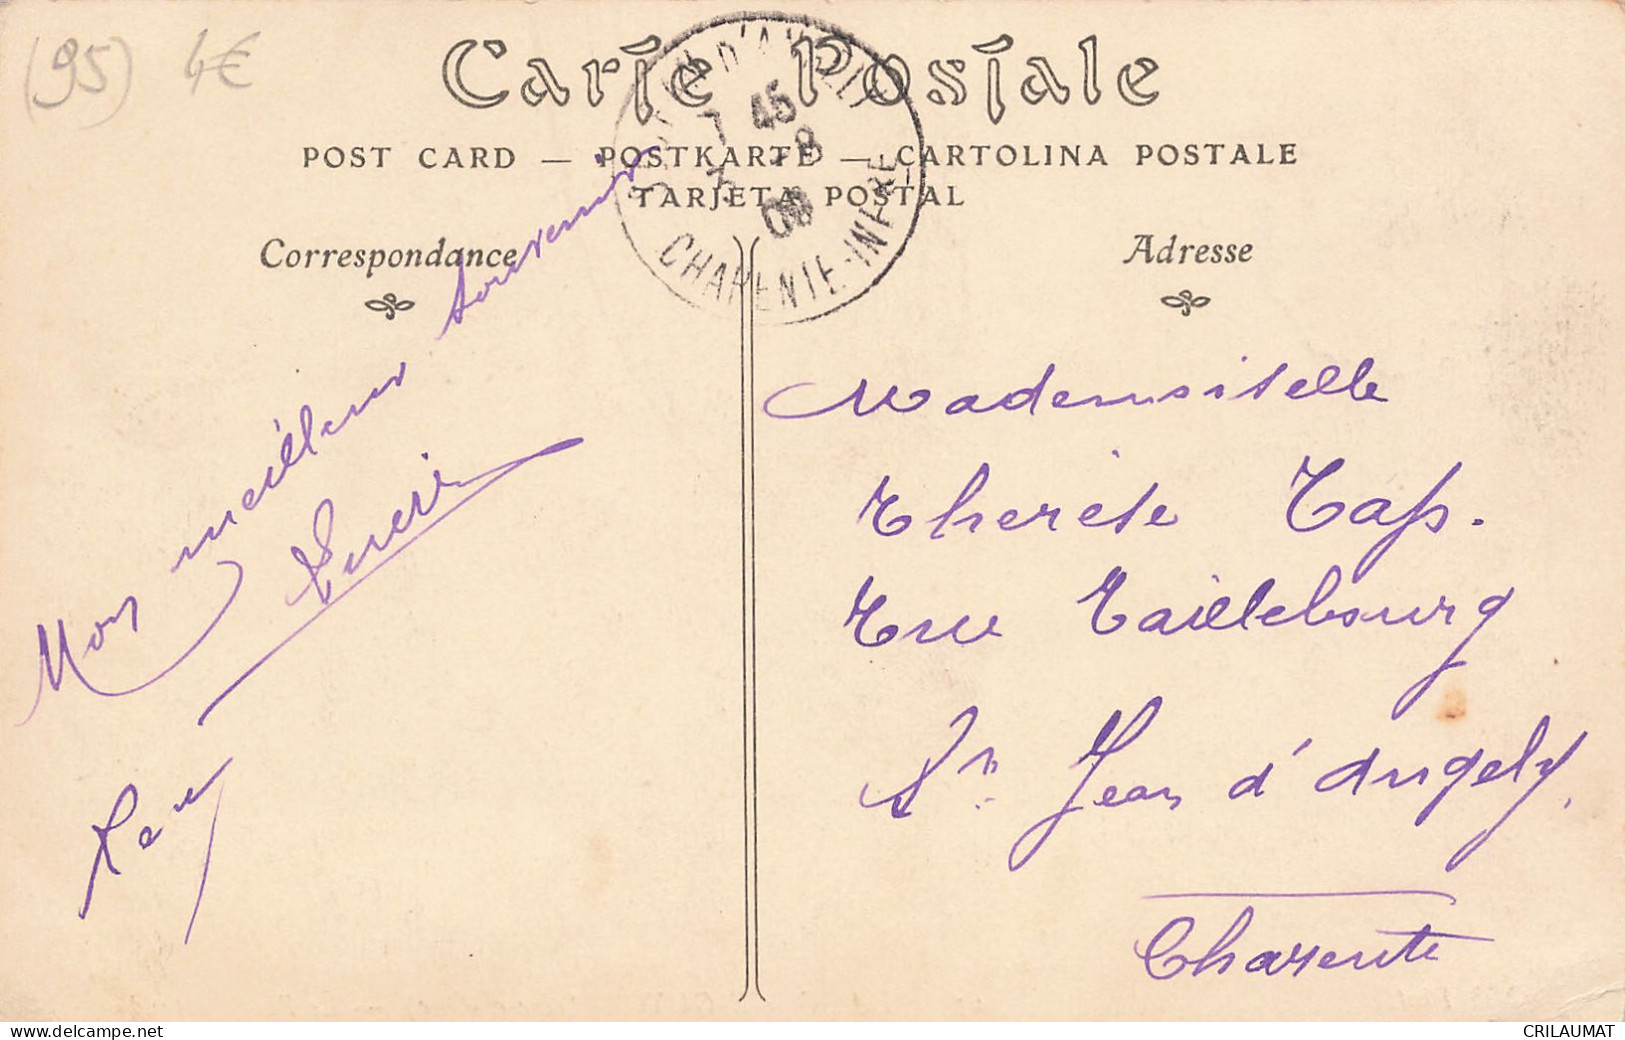 (95) 4€
Carte Postale
POST CARD — POSTKARTE — CARTOLINA POSTALE
TARJETA POSTAL
Correspondance
Adresse
7 45
8
08
CHARENTE-INFRE
Mon meilleur souvenir
Mademoiselle
Therèse Taps.
Rue Taillebourg
St Jean d'Angely
Charente
www.delcampe.net
CRILAUMAT